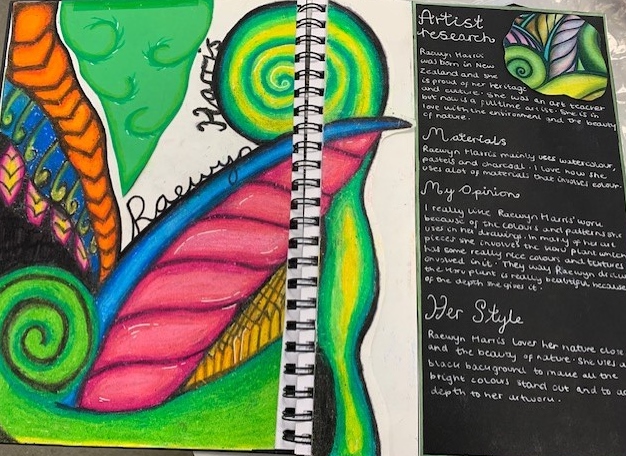 Raewyn
Harris
Artist
research
Raewyn Harris
was born in New
Zealand and she
is proud of her heritage
and culture. She was an art teacher
but now is a fulltime artist. She is in
love with the environment and the beauty
of nature.
Materials
Raewyn Harris mainly uses watercolour,
pastels and charcoal. I love how she
uses alot of materials that involves colour.
My Opinion
I really like Raewyn Harris' work
because of the colours and patterns she
uses in her drawing. In many of her art
pieces she involves the Koru plant which
has some really nice colours and textures
involved in it. They way Raewyn
the Koru plant is really beautiful because
of the depth she gives it.
Her Style
Raewyn Harris lover her nature close
and the beauty of nature. She uses a
black background to make all the
bright colours stand out and to
depth to her artwork.